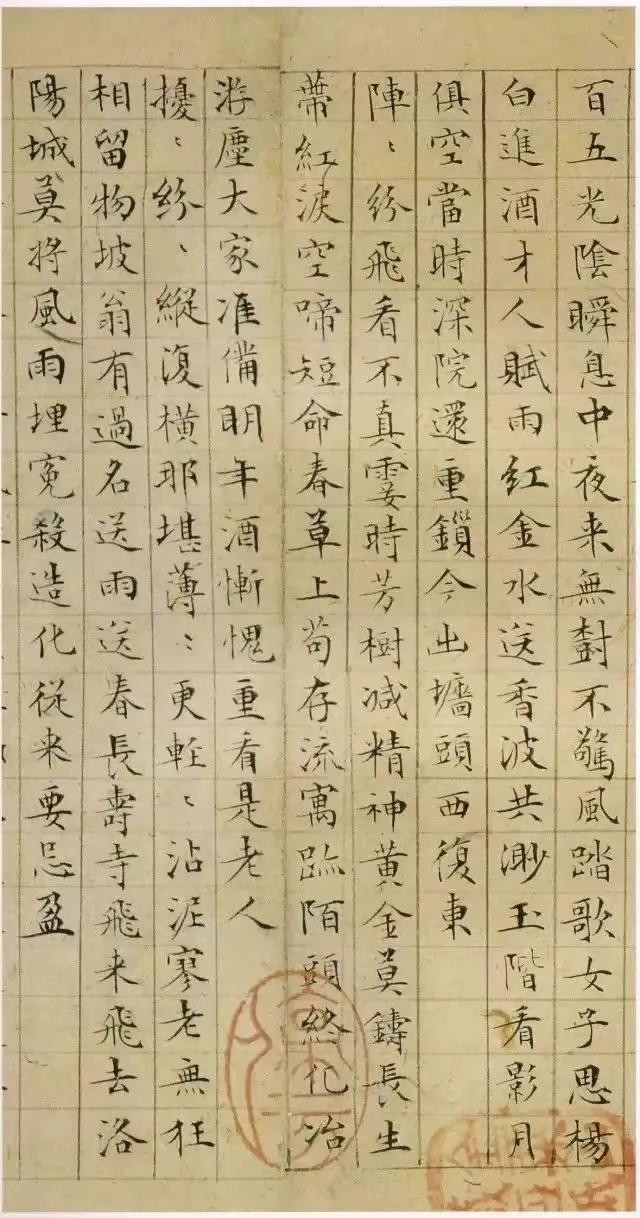 百五光陰瞬息中夜来無對不驚風踏歌女子思楊
白進酒才人賦雨紅金水送香波共渺玉階看影月
俱空當時深院還重鎖今出墻頭西復東
陣〻紛飛看不真霎時芳樹減精神黄金莫鑄長生
蒂紅淚空啼短命春草上苟存流寓跡陌頭終化冶
游塵大家准備明年酒慚愧重看是老人
擾〻紛〻縱復橫那堪薄〻更輕〻沾泥寥老無狂
相留物坡翁有過名送雨送春長壽寺飛来飛去洛
陽城莫將風雨埋冤殺造化従来要忌盈